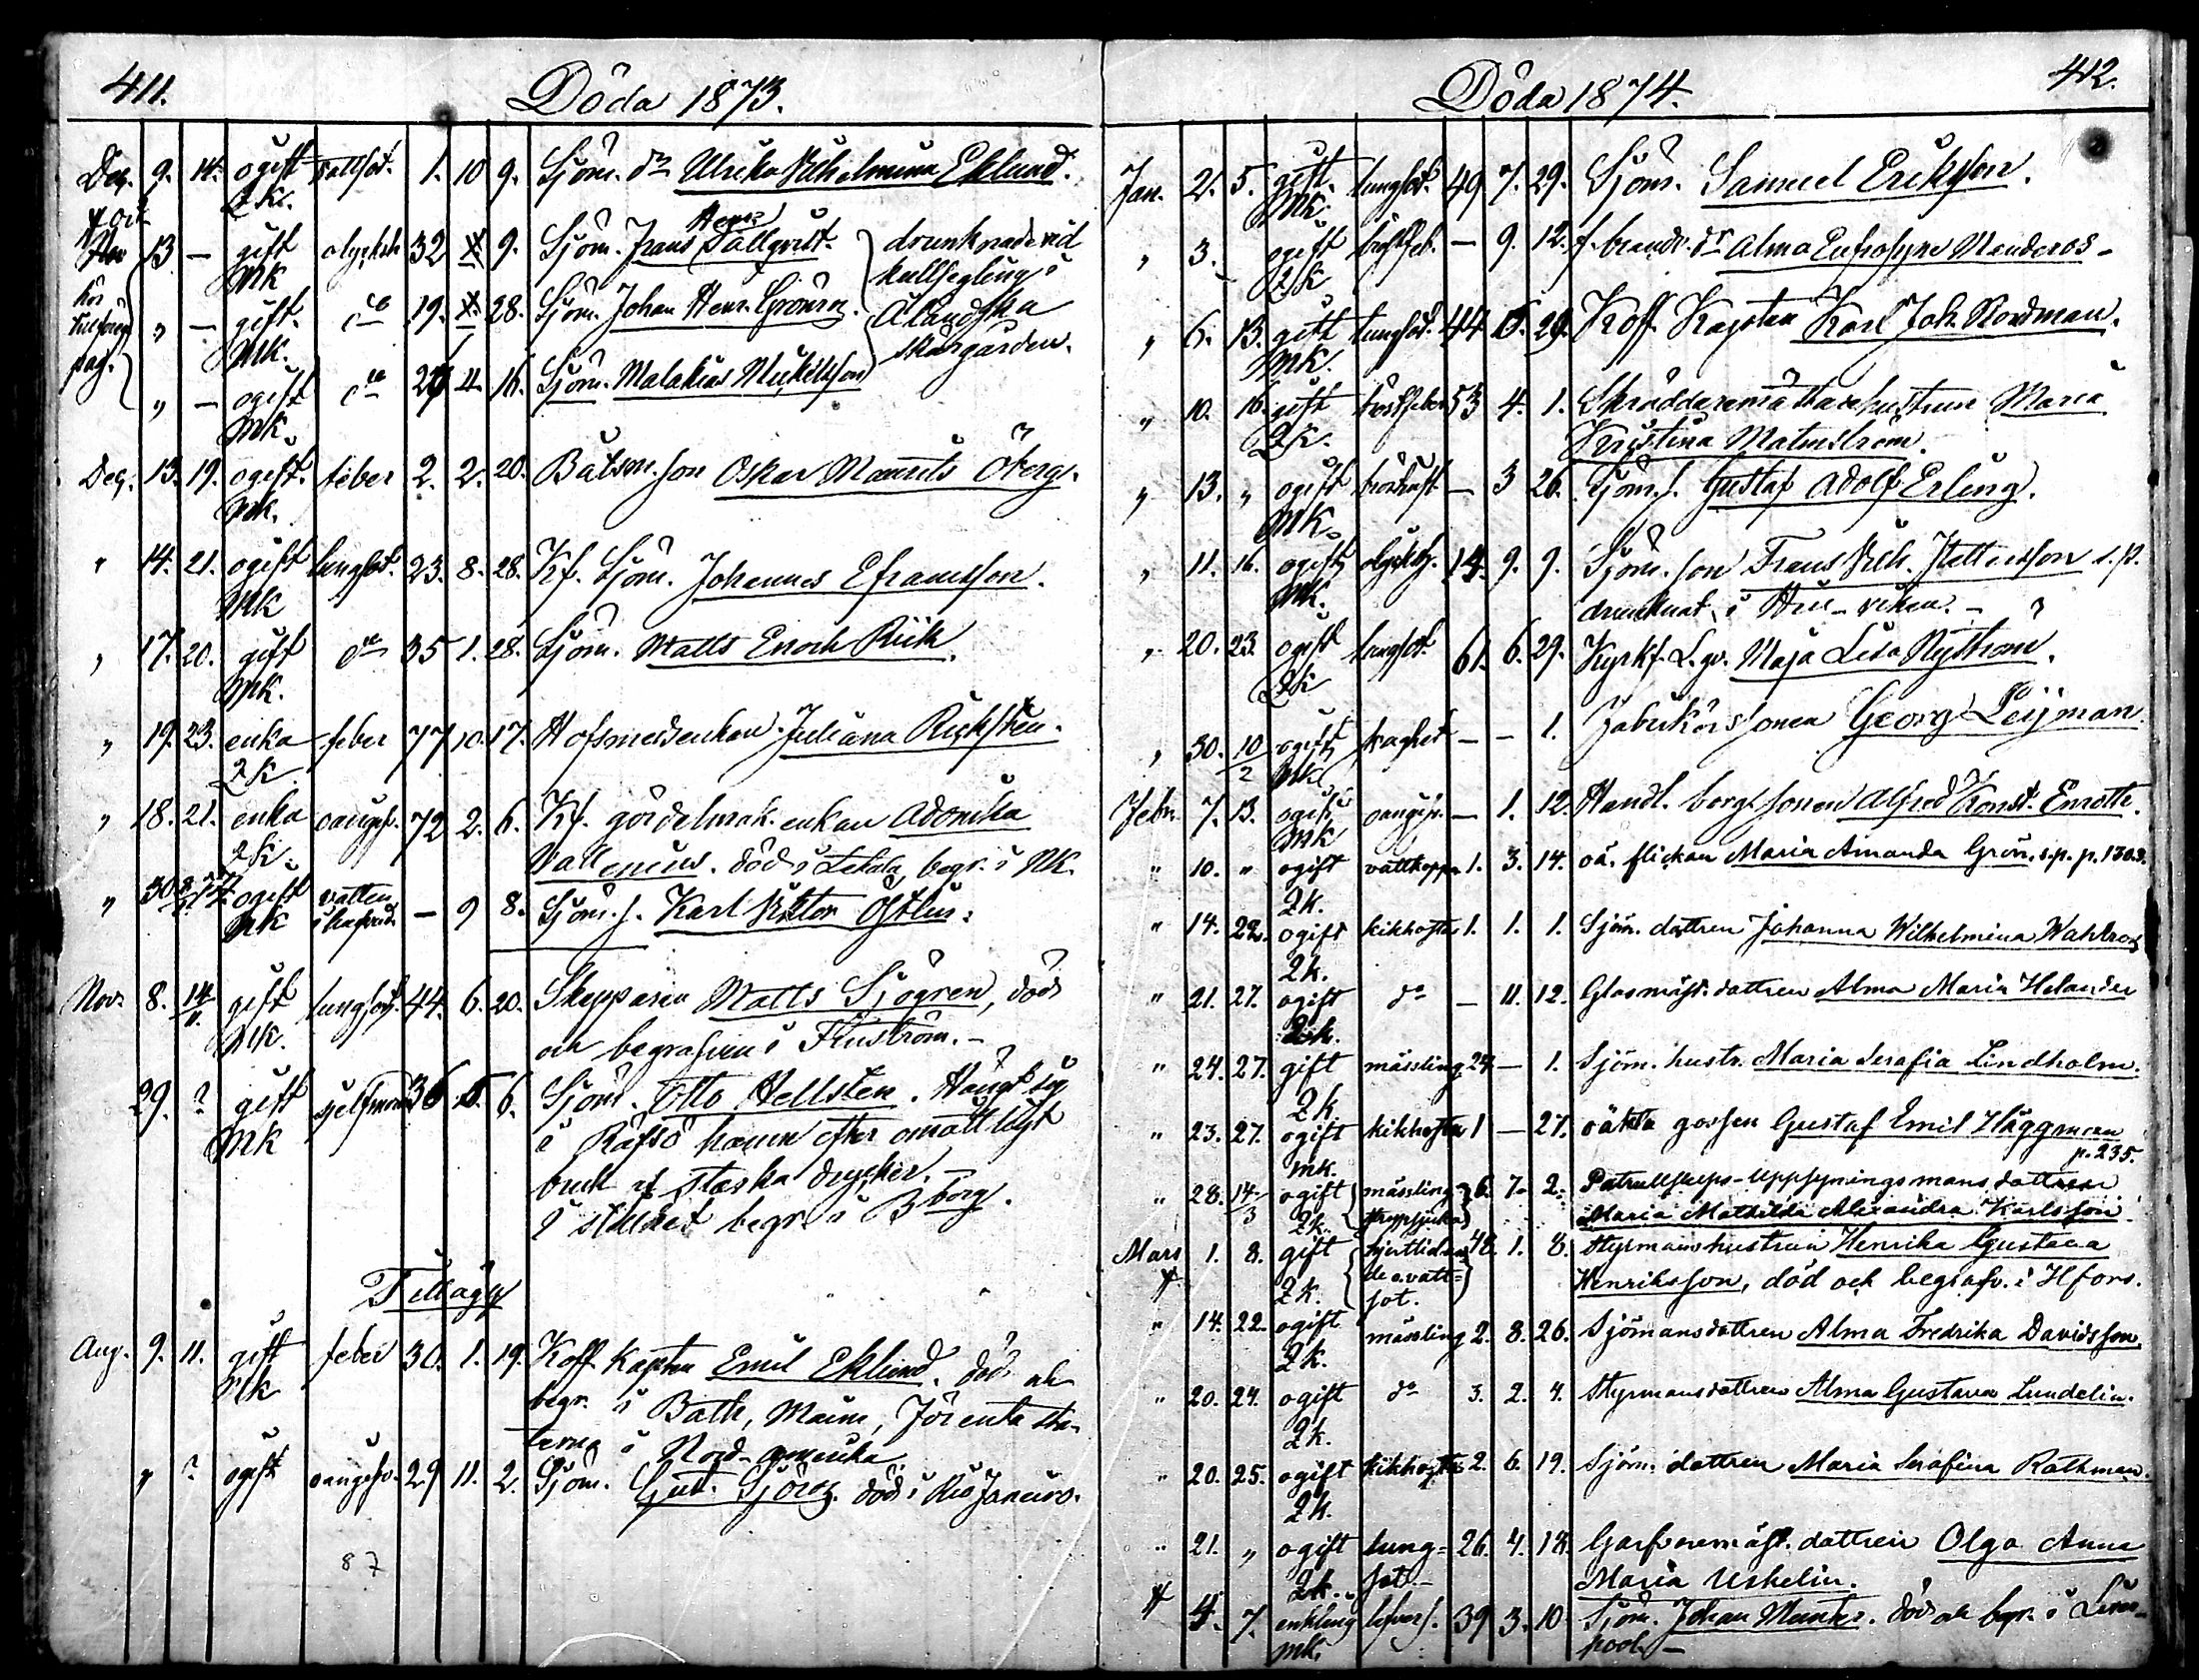 411.
Döda 1873.
Dec. 9. 14. ogift 1. 10 9. Sjöm. dr Ulrika Vilhelmina Eklund.
Q K.
13 — gift olycksh 32 9. Sjöm. Frans Henr. Tallqvist. drunknade vid
MK kullsegling i
„ — gift. do 19. 28. Sjöm. Johan Henr. Grönroos. Åländska
MK. skärgården.
„ — ogift do 4. 16. Sjöm. Malakias Mickelsson
MK.
Dec. 13. 19. ogift. feber 2. 2. 20. Båtsm. son Oskar Maurits Öberg.
MK.
" 14. 21. ogift lungsot. 23. 8. 28. Kf. Sjöm. Johannes Eframsson.
MK
„ 17. 20. gift do 35 1. 28. Sjöm. Matts Enoch Riik.
MK.
„ 19. 23. enka feber 77 10. 17. Hofsmedsenkan Juliana
Q K.
„ 18. 21. enka oangif. 72 2. 6. Kf. gördelmak. enkan
Q K. Vallenius. död i Letala, begr. i NK.
„ 30 ogift vatten — 9 8. Sjöm. s. Karl Viktor Östlin.
MK i hufvud.
Nov. 8. 14/11. gift lungsot. 44. 6. 20. Skepparen Matts Sjögren, död
MK. och begrafven i
29. ? gift sjelfmord 36 6. Sjöm. Otto Hellsten. Hängt sig
MK i Räfsö hamn efter omåttligt
bruk af starka drycker. —
I stillhet begr. i Bborg.
Tillägg
Aug. 9. 11. gift feber 30. 1. 19. Koff. Kapten Emil Eklund. död och
MK begr. i Bath, Maine, Förenta sta-
terna i Nord-amerika.
„ ? ogift oangifv. 29 11. 2. Sjöm. Gust. Sjöroos. död i Rio Janeiro.
87
412.
Döda 1874.
Jan. 2. 5. gift. lungsot. 49 7. 29. Sjöm. Samuel Eriksson.
MK.
„ 3. ogift bröstfeb. — 9. 12. f. brandv. dr Alma Eufrosyne Manderos-
Q K
„ 6. 13. gift lungsot. 44 Koff. Kapten Karl Joh. Nordman.
MK.
„ 10. 16. gift bröstfeber 53 4. 1. Skräddaremästarehustrun Maria
Q K. Kristina Malmström.
„ 13. „ ogift — 3 26. Sjöm. s. Gustaf Adolf Erling.
MK.
„ 11. 16. ogift olycksh. 14. 9. 9. Sjöm. son Frans Vilh. s. p.
MK. drunknat i
„ 20. 23. ogift lungsot. 61. 6. 29. Kyrkf. Maja Lisa Nyström.
Q K
„ 30. 10/2 ogift svaghet — — 1. Fabrikörs sonen Georg Leijman
MK
Febr. 7. 13. ogift oangif. — 1. 12. Handl. borg. sonen Alfred Konst. Enroth.
MK
" 10. " ogift vattkoppor 1. 3. 14. oä. flickan Maria Amanda Grön. s. p. p. 1303.
Q K.
" 14. 22. ogift kikhosta 1. 1. 1. Sjöm. dottren Johanna Wilhelmina Wahlroos
Q K.
" 21. 27. ogift do — 11. 12. Glasmäst. dottren Alma Maria Helander
Q K.
" 24. 27. gift mässling 24 — 1. Sjöm. hustr. Maria Serafia Lindholm.
Q K.
" 23. 27. ogift kikhosta 1 — 27. oäkta gossen Gustaf Emil Häggman
mk. p. 235.
" 28. 14/3 ogift mässling 6. 7. 2. Patrullskeps-uppsyningsmans dottren
Q K. Maria Mathilda Alexandra Karlsson
Mars 1. 8. gift hjertlidan- 48. 1. 8. Styrmanshustrun Henrika Gustava
Q K. de o. vatt= Henriksson, död och begrafv. i Hfors.
sot.
" 14. 22. ogift mässling 2. 8. 26. Sjömansdottren Alma Fredrika Davidsson.
Q K.
" 20. 24. ogift do 3. 2. 4. Styrmansdottren Alma Gustava Lundelin.
Q K.
" 20. 25. ogift kikhosta 2. 6. 19. Sjöm. dottren Maria Serafina Rothman.
Q K.
" 21. „ ogift lung= 26. 4. 18. Garfvaremäst. dottren Olga Anna
Q K. sot. — Maria Uskelin.
4. 7. enkling lefvers. 39 3. 10 Sjöm. Johan Munter. död och begr. i Liver-
mk. pool. —